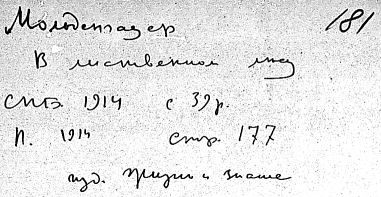 Мольденгауер 181
В лиственном лесу
СПБ. 1914 с 39 р.
П. 1914 стр. 177
изд. Жизнь и знание